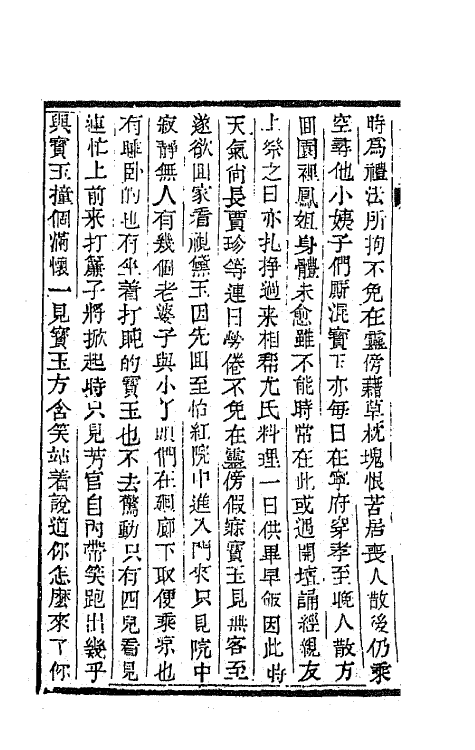 時爲禮法所拘不免在靈傍藉草枕塊恨苦居喪人散後仍乘
空尋他小姨子們厮混寶玉亦每日在寧府穿孝至晚人散方
回園裡鳳姐身體未愈雖不能時常在此或遇開壇誦經親友
上祭之日亦扎掙過来相帮尤氏料理一日供畢早飯因此時
天氣尚長賈珍等連日勞倦不免在靈傍假寐寶玉見無客至
遂欲回家看視黛玉因先回至怡紅院中進入門來只見院中
寂靜無人有幾個老婆子與小丫頭們在迴廊下取便乘凉也
有睡卧的也有坐着打盹的寶玉也不去驚動只有四兒看見
連忙上前来打簾子將掀起時只見芳官自內帶笑跑出幾乎
與寶玉撞個滿懷一見寶玉方含笑站着說道你怎麽來了你